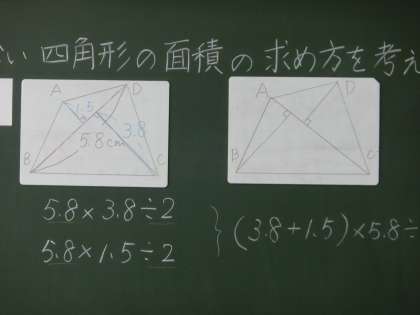 い四角形の面積の求め方を考え
A D
1.5
3.8
5.8cm
B C
A D
B C
5.8×3.8÷2
5.8×1.5÷2
(3.8+1.5)×5.8÷